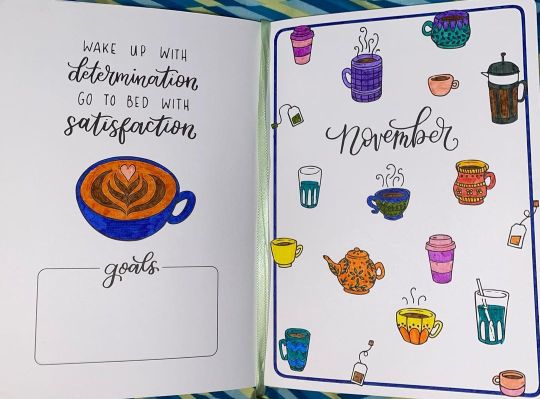 WAKE UP WITH
determination
GO TO BED WITH
satisfaction
goals
November